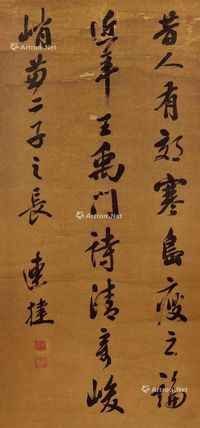 昔人有郊寒島瘦之論
近年王禹門詩清奇峻
峭兼二子之長 陳捷